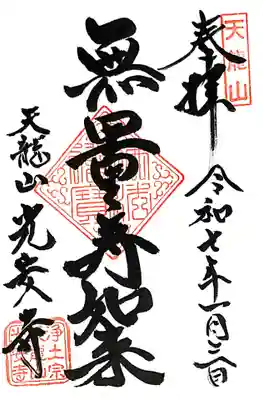 天龍山
奉拝
令和七年一月三日
無量寿如来
天龍山
光安寺
浄土宗
天龍山
光安寺